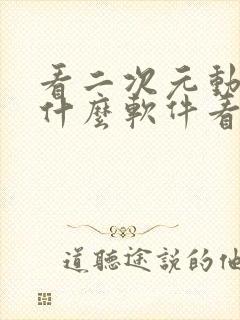 看二次元動
什麼軟件看
道聽途說的他